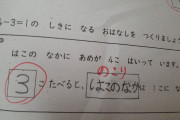 4-3=1の しきに なる おはなしを つくりましょう
はこの なかに あめが 4こ はいって います。
のこり
3こたべると、はこのなかは 1こ に な